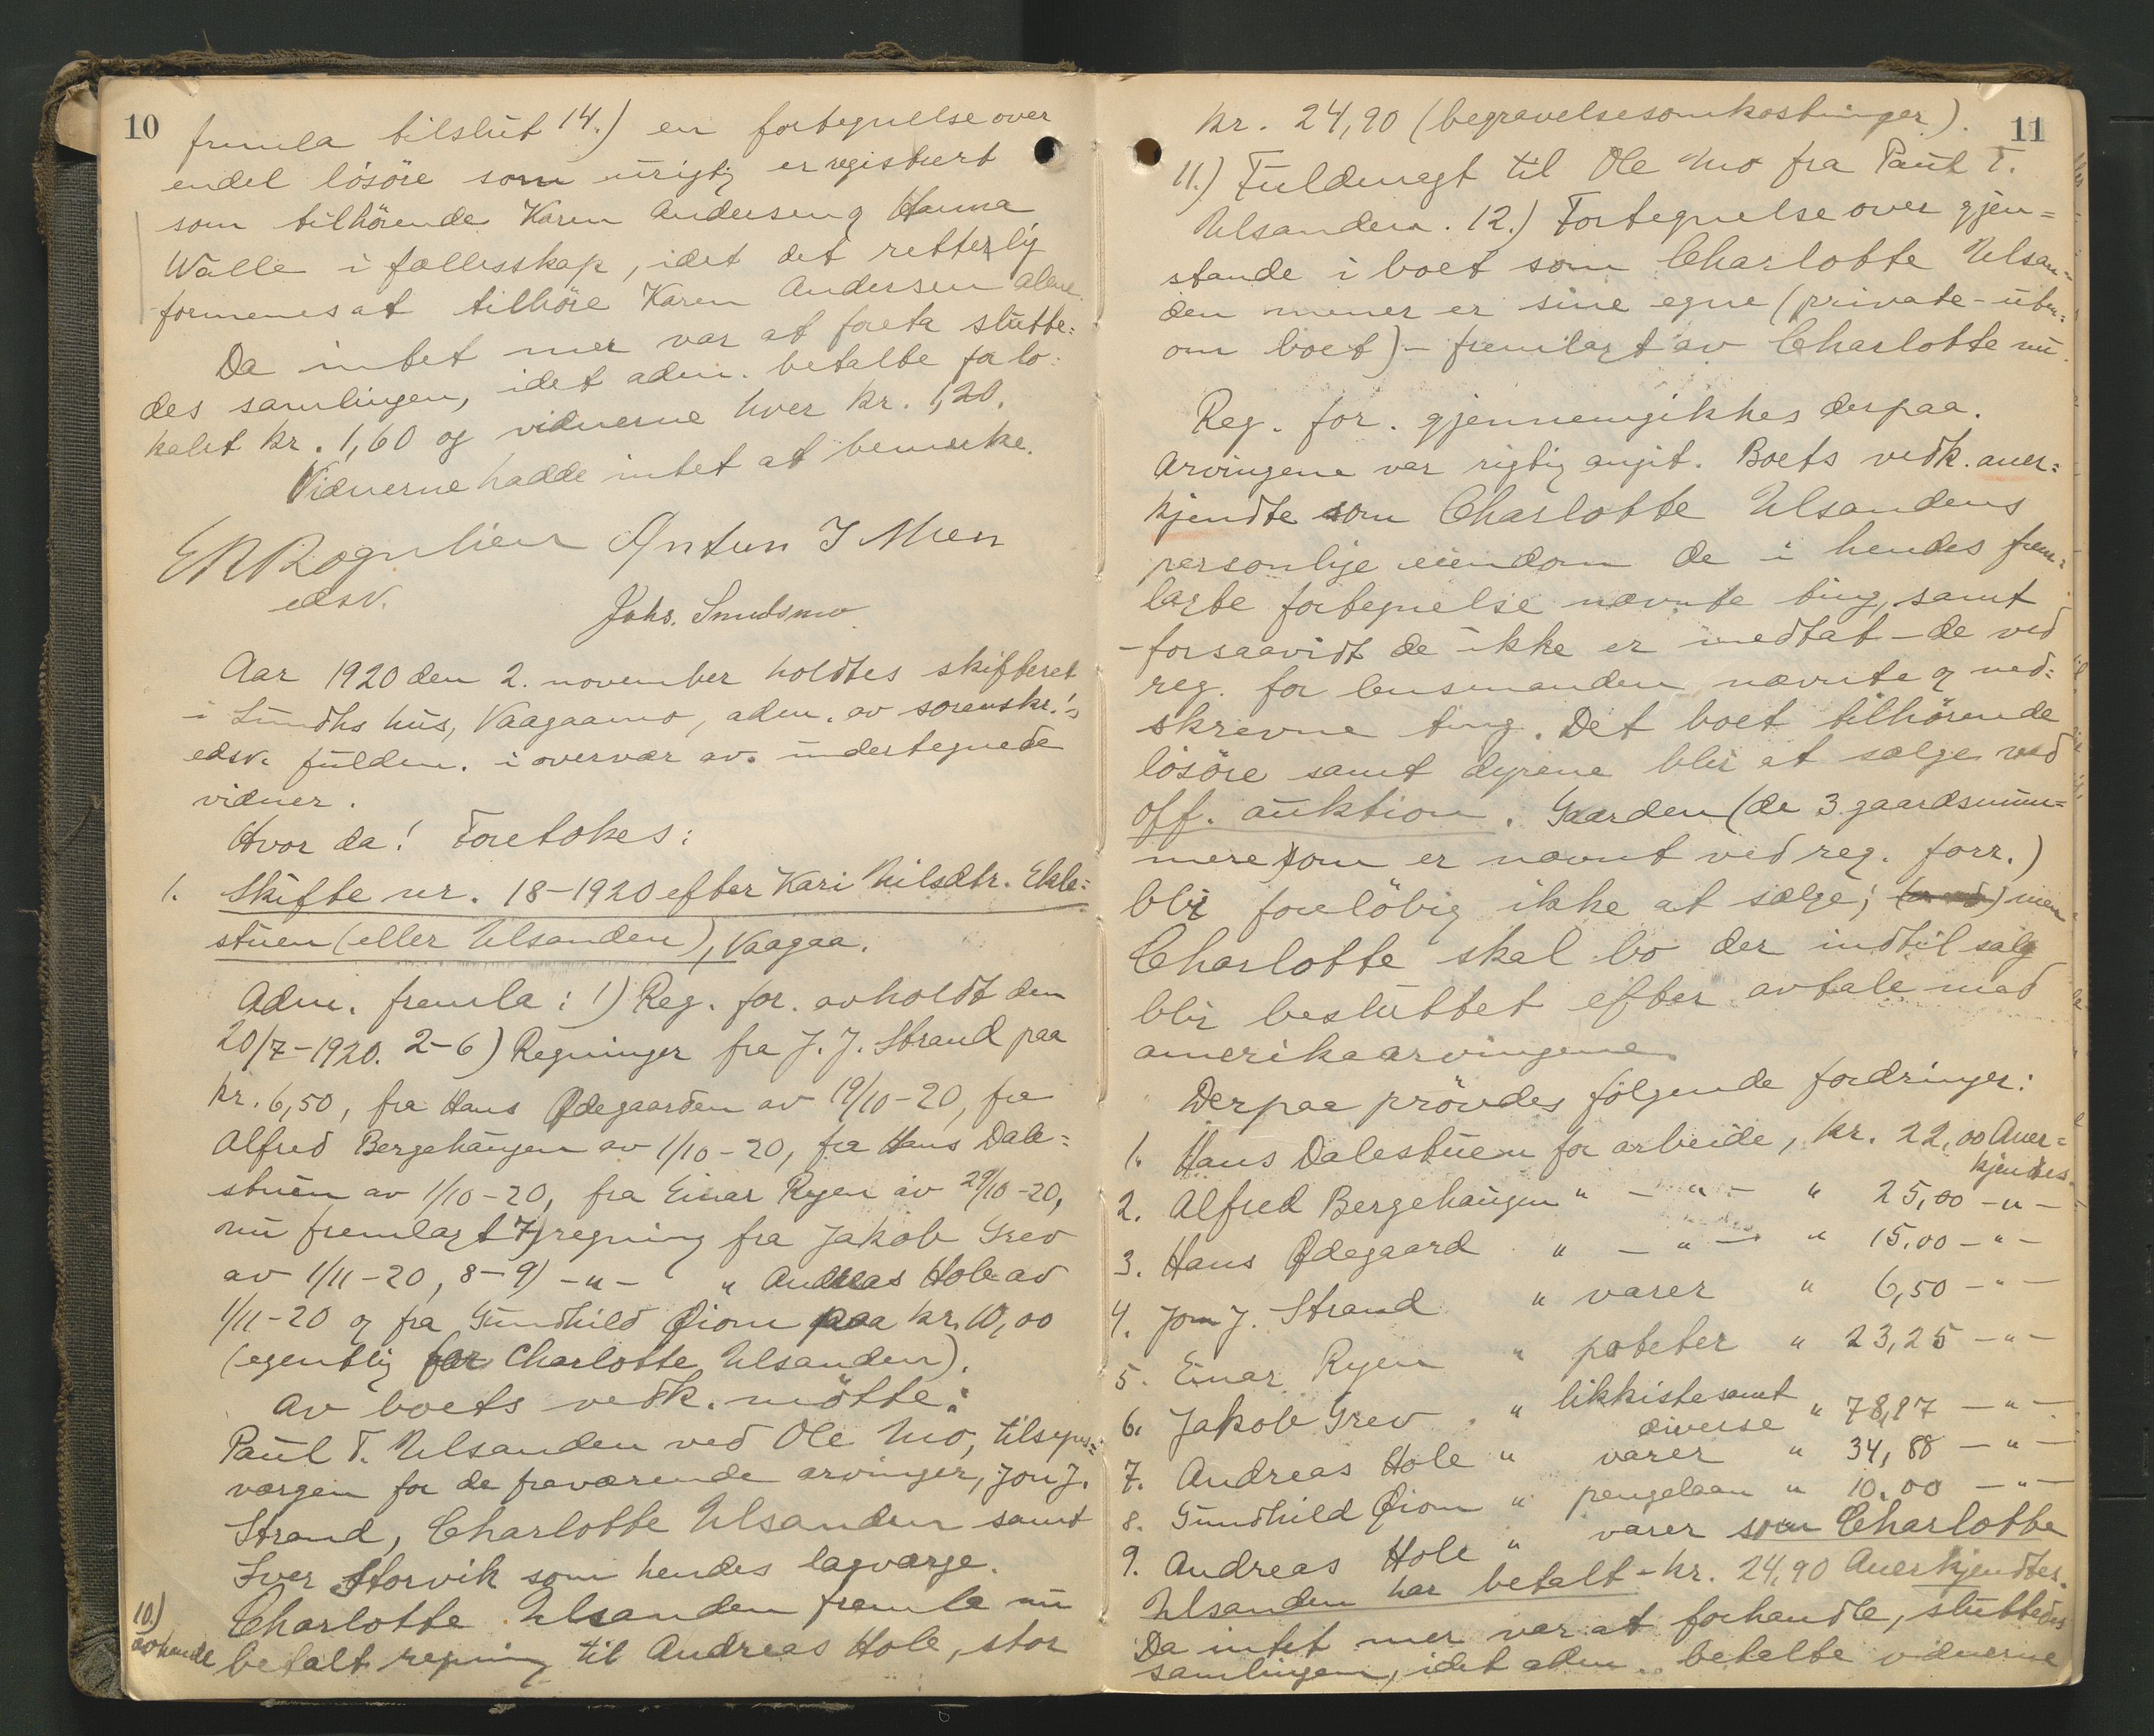 10
fremla tilslut 14.) en fortegnelse over
endel lösöre som urigtig er registrert
som tilhörende Karen Andersen og Hanna
Walle i fællesskap, idet det retterlig
formenes at tilhöre Karen Andersen alene.
Da intet mer var at foreta slutte=
des samlingen, idet adm. betalte for lo-
kalet kr. 1,60 og vidnerne hver kr. 1,20.
Vidnerne hadde intet at bemerke.
E R Rognlien Antun I Moen
edsv.
Johs. Smedsmo
Aar 1920 den 2. november holdtes skifteret
i Sundhs hus, Vaagaamo, adm. av sorenskr.'s
edsv. fuldm. i overvær av undertegnede
vidner.
Hvor da! Foretokes:
1. Skifte nr. 18-1920 efter Kari Nilsdtr. Ekle=
stuen (eller Ulsanden), Vaagaa.
Adm. fremla: 1) Reg. for. avholdt den
20/7-1920. 2-6) Regninger fra J. J. Strand paa
kr. 6,50, fra Hans Ødegaarden av 19/10-20, fra
Alfred Bergehaugen av 1/10-20, fra Hans Dale=
stuen av 1/10-20, fra Einar Ryen av 29/10-20,
nu fremlagt 7) regning fra Jakob Grev
av 1/11-20, 8-9) -"- " Andreas Hole av
1/11-20 og fra Gundhild Øiom paa kr. 10,00
(egentlig for Charlotte Ulsanden).
Av boets vedk. mötte:
Paul T. Ulsanden ved Ole Mo, tilsyns=
værgen for de fraværende arvinger, Jon J.
Strand, Charlotte Ulsanden samt
Iver Storvik som hendes lagværge.
Charlotte Ulsanden fremla nu
10.)
avhende betalt regning til Andreas Hole, stor
11
kr. 24,90 (begravelsesomkostninger).
11.) Fuldmagt til Ole Mo fra Paul T.
Ulsanden. 12.) Fortegnelse over gjen=
stande i boet som Charlotte Ulsan=
den mener er sine egne (private - uten=
om boet) - fremlagt av Charlotte nu.
Reg. for. gjennemgikkes derpaa.
Arvingene var rigtig angit. Boets vedk. aner=
kjendte som Charlotte Ulsandens
personlige eiendom de i hendes frem=
lagte fortegnelse nævnte ting, samt
- forsaavidt de ikke er medtat - de ved
reg. for lensmanden nævnte og ned=
skrevne ting. Det boet tilhörende
lösöre samt dyrene blir at sælge ved
off. auktion. Gaarden (de 3 gaardsnum=
mere som er nævnt ved reg. forr.)
blir foreløbig ikke at sælge; men
Charlotte skal bo der indtil salg
blir besluttet efter avtale med
amerikaarvingene.
Derpaa prövdes følgende fordringer:
1. Hans Dalestuen for arbeide, kr. 22,00 Aner=
kjendtes.
2. Alfred Bergehaugen " - " - " 25,00 - " -
3. Hans Ødegaard " - " - " 15,00 - " -
4. Jon J. Strand " varer " 6,50 - " -
5. Einar Ryen " poteter " 23,25 - " -
6. Jakob Grev " likkiste samt
diverse " 78,97 - " -
7. Andreas Hole " varer " 34,88 - " -
8. Gundhild Øiom " pengelaan " 10.00 - " -
9. Andreas Hole " varer som Charlotte
Ulsanden har betalt - kr. 24,90 Anerkjendtes.
Da intet mer var at forhandle, sluttedes
samlingen, idet adm. betalte vidnerne